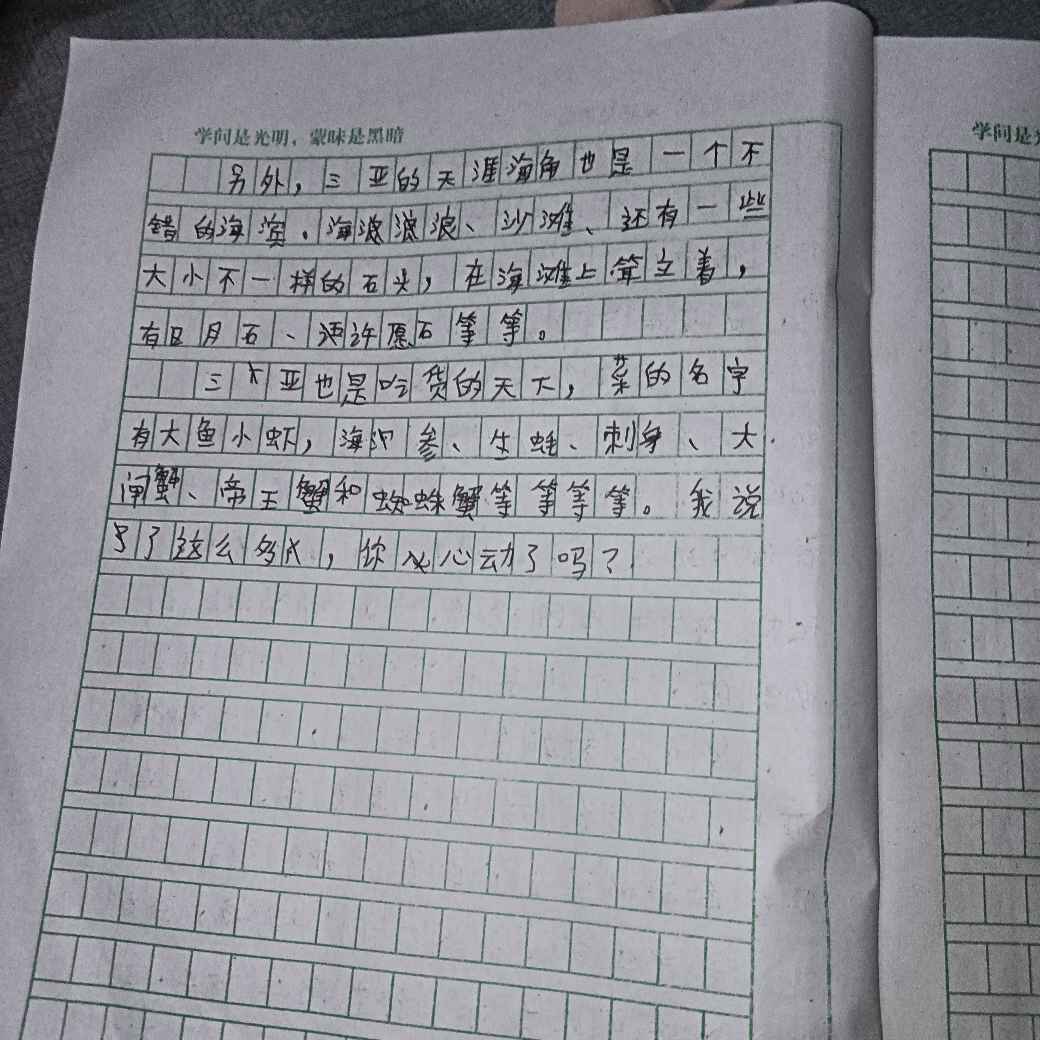 学问是光明，蒙昧是黑暗
学问是
另外，三亚的天涯海角也是一个不
错的海滨。海浪滚滚、沙滩、还有一些
大小不一样的石头，在海滩上耸立着，
有日月石、许愿石等等。
三亚也是吃货的天下，菜的名字
有大鱼小虾，海参、生蚝、刺身、大
闸蟹、帝王蟹和蜘蛛蟹等等等等。我说
了这么多，你心动了吗？